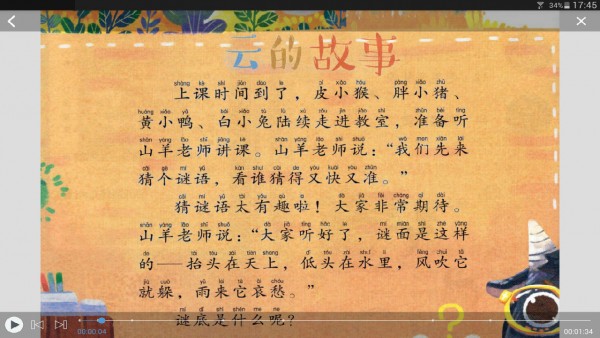 34% 17:45
云的故事
shàng kè shí jiān dào le pí xiǎo hóu pàng xiǎo zhū
上课时间到了，皮小猴、胖小猪、
huáng xiǎo yā bái xiǎo tù lù xù zǒu jìn jiào shì zhǔn bèi tīng
黄小鸭、白小兔陆续走进教室，准备听
shān yáng lǎo shī jiǎng kè shān yáng lǎo shī shuō wǒ men xiān lái
山羊老师讲课。山羊老师说：“我们先来
cāi gè mí yǔ kàn shuí cāi de yòu kuài yòu zhǔn
猜个谜语，看谁猜得又快又准。”
cāi mí yǔ tài yǒu qù la dà jiā fēi cháng qī dài
猜谜语太有趣啦！大家非常期待。
shān yáng lǎo shī shuō dà jiā tīng hǎo le mí miàn shì zhè yàng
山羊老师说：“大家听好了，谜面是这样
de tái tóu zài tiān shàng dī tóu zài shuǐ lǐ fēng chuī tā
的——抬头在天上，低头在水里，风吹它
jiù duǒ yǔ lái tā āi chóu
就躲，雨来它哀愁。”
mí dǐ shì shén me ne
谜底是什么呢？
00:00:04
00:01:34